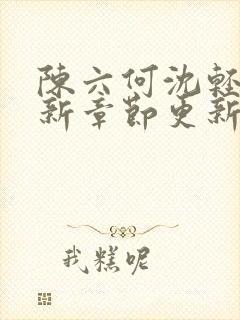 陳六何沈輕
新章節更新
我糕呢